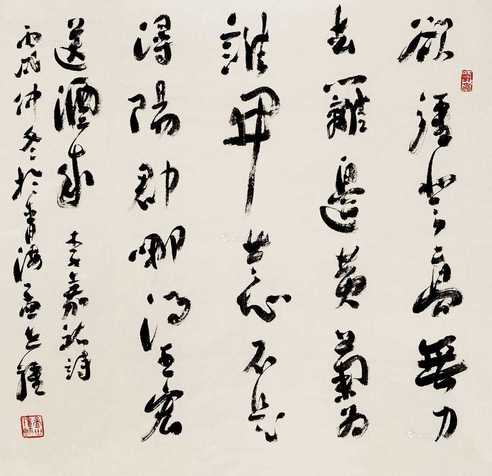 欲強登高無力
去籬邊黃菊為
誰開共不是
潯陽郡哪得王宏
送酒來 李嘉祐詩
丙戌仲冬於青海